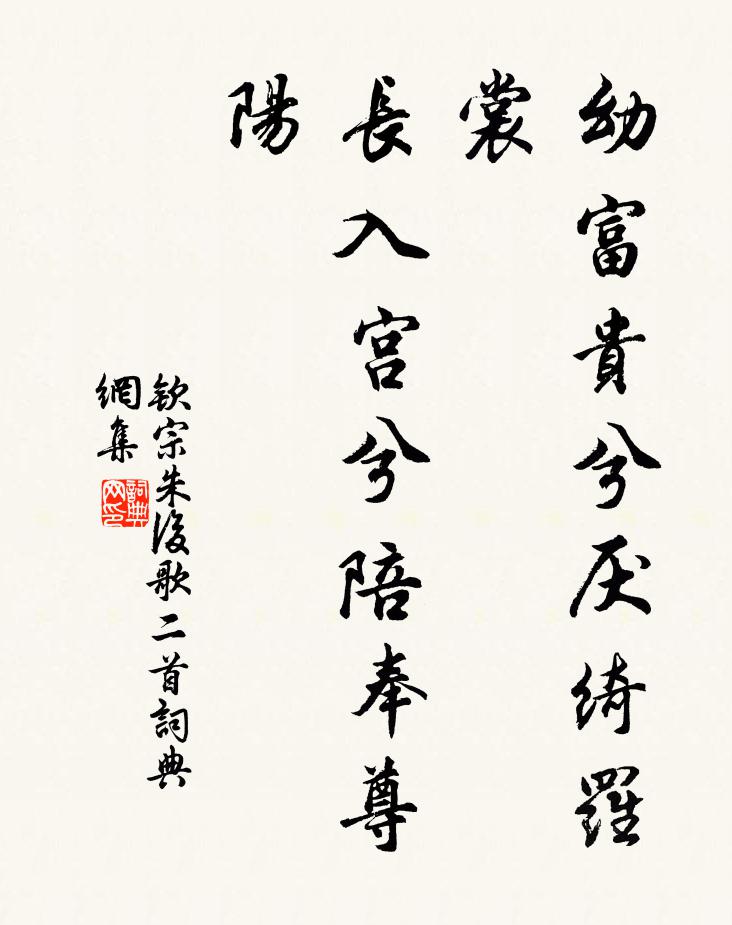 幼富貴兮厌綺羅
裳
長入宫兮陪奉尊
陽
欽宗朱後歌二首詞典
網集
詞典
网印